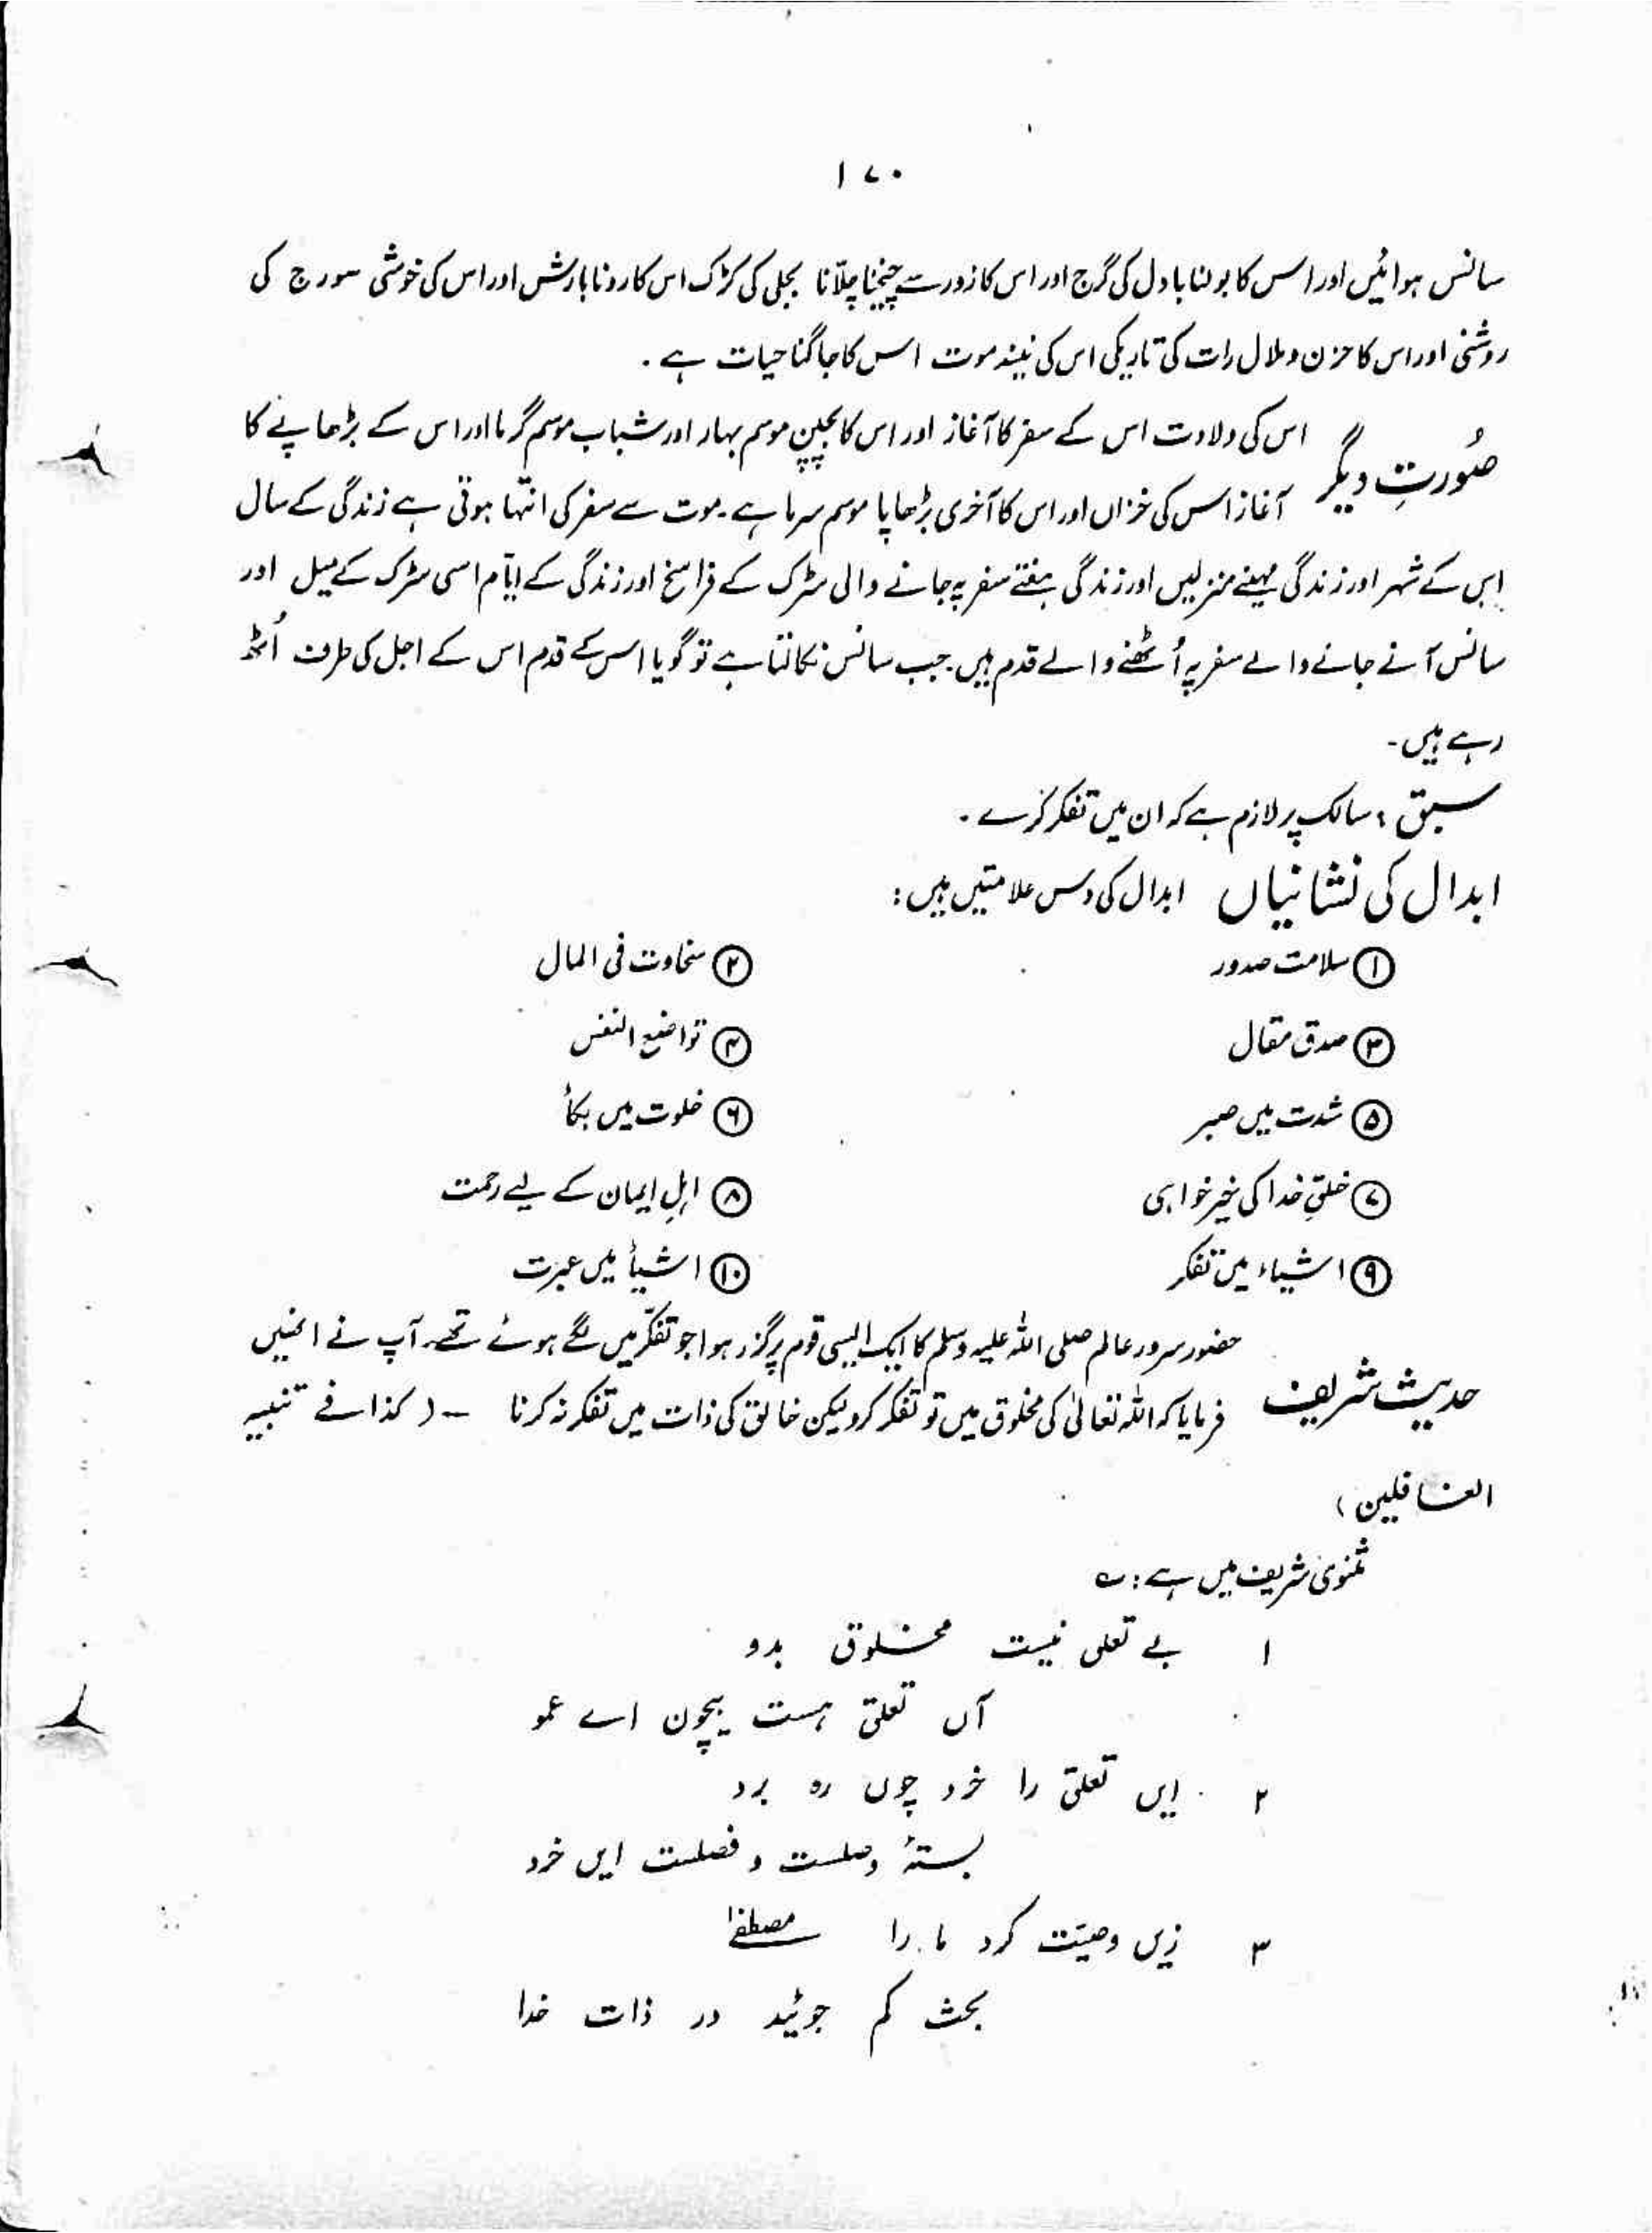 ۱۷۰
سانس ہوائیں اور اس کا بولنا بادل کی گرج اور اس کا زور سے چیخنا چلّانا بجلی کی کڑک اس کا رونا بارش اور اس کی خوشی سورج کی
روشنی اور اس کا حزن و ملال رات کی تاریکی اس کی نیند موت اس کا جاگنا حیات ہے ۔
صُورتِ دیگر اس کی ولادت اس کے سفر کا آغاز اور اس کا بچپن موسم بہار اور شباب موسم گرما اور اس کے بڑھاپے کا
آغاز اس کی خزاں اور اس کا آخری بڑھاپا موسم سرما ہے ۔ موت سے سفر کی انتہا ہوتی ہے زندگی کے سال
اس کے شہر اور زندگی مہینے منزلیں اور زندگی ہفتے سفر پہ جانے والی سڑک کے فراسخ اور زندگی کے ایّام اسی سڑک کے میل اور
سانس آنے جانے والے سفر پہ اُٹھنے والے قدم ہیں جب سانس نکالتا ہے تو گویا اس کے قدم اس کے اجل کی طرف اُٹھ
رہے ہیں ۔
سبق : سالک پر لازم ہے کہ ان میں تفکر کرے ۔
ابدال کی نشانیاں ابدال کی دس علامتیں ہیں :
① سلامت صدور ② سخاوت فی المال
③ صدق مقال ④ تواضع النفس
⑤ شدت میں صبر ⑥ خلوت میں بکأ
⑦ خلقِ خدا کی خیر خواہی ⑧ اہلِ ایمان کے لیے رحمت
⑨ اشیاء میں تفکر ⑩ اشیأ میں عبرت
حدیث شریف حضور سرور عالم صلی اللہ علیہ وسلم کا ایک ایسی قوم پر گزر ہوا جو تفکّر میں لگے ہوئے تھے ۔ آپ نے انہیں
فرمایا کہ اللہ تعالیٰ کی مخلوق میں تو تفکر کرو لیکن خالق کی ذات میں تفکر نہ کرنا ۔ ( کذا فے تنبیہ
الغافلین )
مثنوی شریف میں ہے : ے
۱ بے تعلق نیست مخلوق بدو
آں تعلق ہست بیچون اے عمو
۲ ایں تعلق را خرد چوں رہ برد
بستۂ وصلست و فصلست ایں خرد
۳ زیں وصیّت کرد ما را مصطفےٰ
بحث کم جوئید در ذات خدا